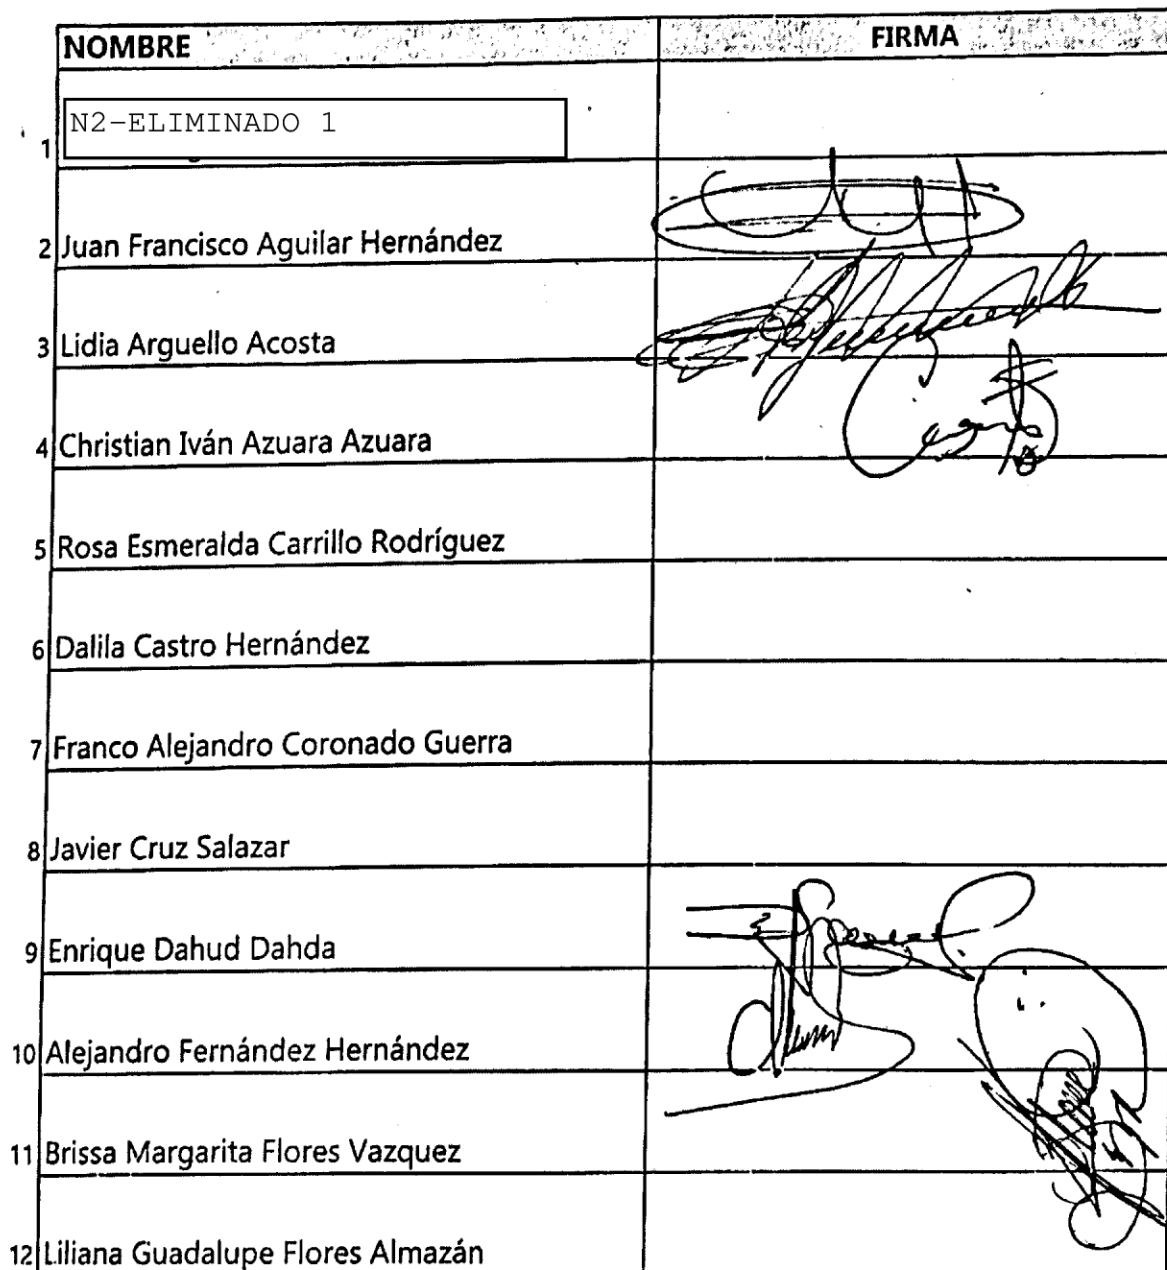 NOMBRE FIRMA
1 N2-ELIMINADO 1
2 Juan Francisco Aguilar Hernández
3 Lidia Arguello Acosta
4 Christian Iván Azuara Azuara
5 Rosa Esmeralda Carrillo Rodríguez
6 Dalila Castro Hernández
7 Franco Alejandro Coronado Guerra
8 Javier Cruz Salazar
9 Enrique Dahud Dahda
10 Alejandro Fernández Hernández
11 Brissa Margarita Flores Vazquez
12 Liliana Guadalupe Flores Almazán